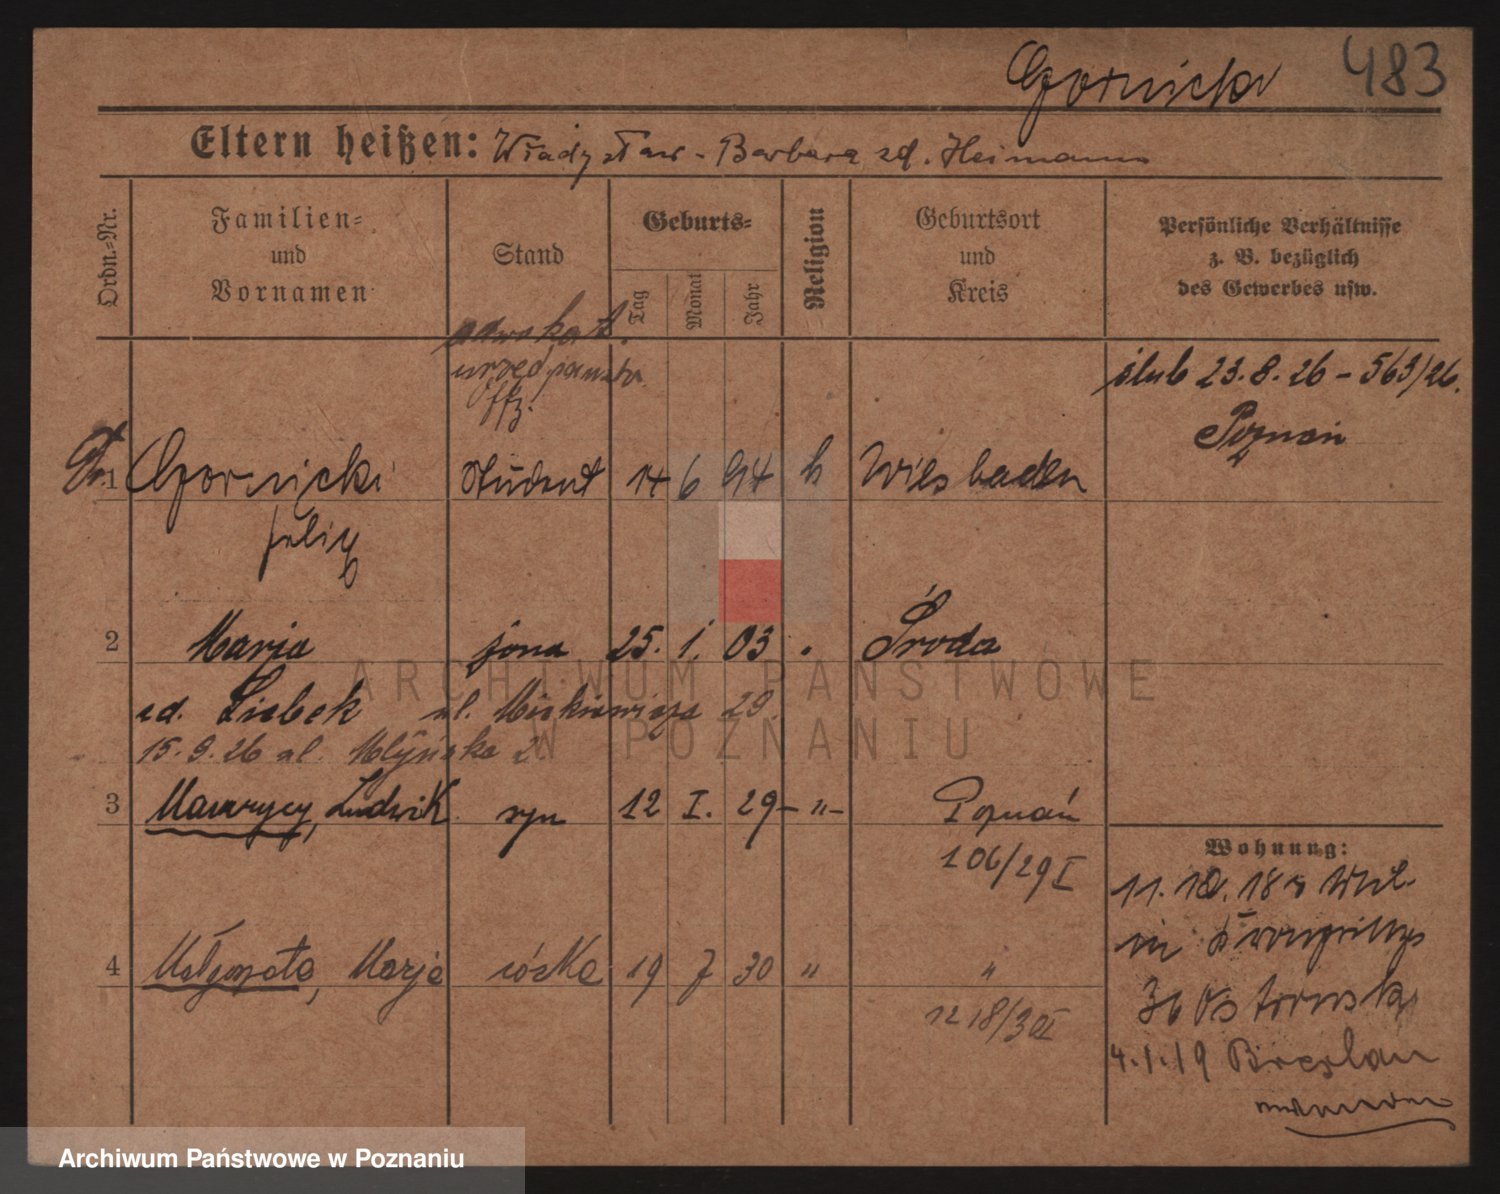 Gornicki 483
Eltern heißen: Władysław - Barbara zd. Heimann
Ordn.-Nr.
Familien-
und
Vornamen
Stand
Geburts-
Tag
Monat
Jahr
Religion
Geburtsort
und
Kreis
Persönliche Verhältnisse
z. B. bezüglich
des Gewerbes usw.
adwokat.
offz.
ślub 23.8.26 - 563/26.
Poznań
1 Gornicki Student 14 6 94 k Wiesbaden
Felix
2 Maria żona 25. 1. 03 Środa
zd. Liebek ul. Mickiewicza 29.
15.9.26 ul. Młyńska 2
3 Maurycy, Ludwik syn 12 I. 29 -"- Poznań
106/29 I
4 Małgorzata, Marja córka 19 7 30 " "
1218/30 I
Wohnung:
11.10.18
4.1.19 Breslau
ARCHIWUM PAŃSTWOWE
W POZNANIU
Archiwum Państwowe w Poznaniu